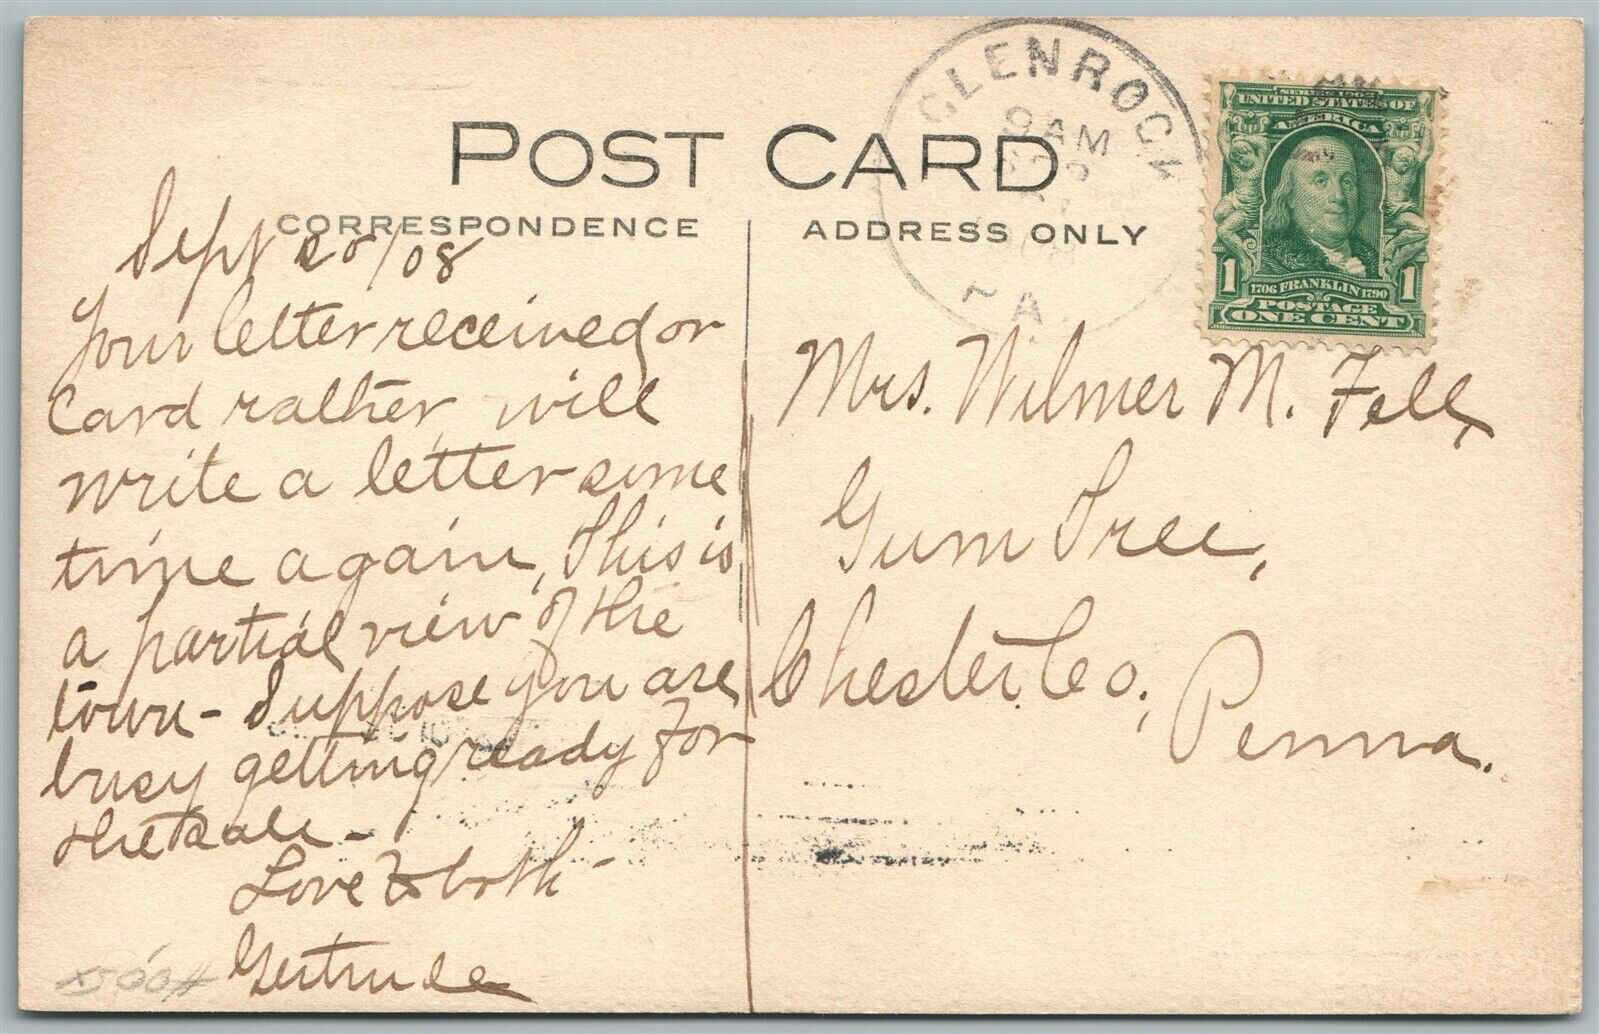 POST CARD
CORRESPONDENCE
ADDRESS ONLY
GLENROCK
9 AM
PA.
SERIES 1902
UNITED STATES OF
AMERICA
1 1
1706 FRANKLIN 1790
POSTAGE
ONE CENT
Sept 20/08
Your letter received or
card rather, will
write a letter some
time again, This is
a partial view of the
town - Suppose you are
busy getting ready for
the sale -
Love to both -
Gertrude
Mrs. Wilmer M. Fell,
Gum Tree,
Chester Co.,
Penna.